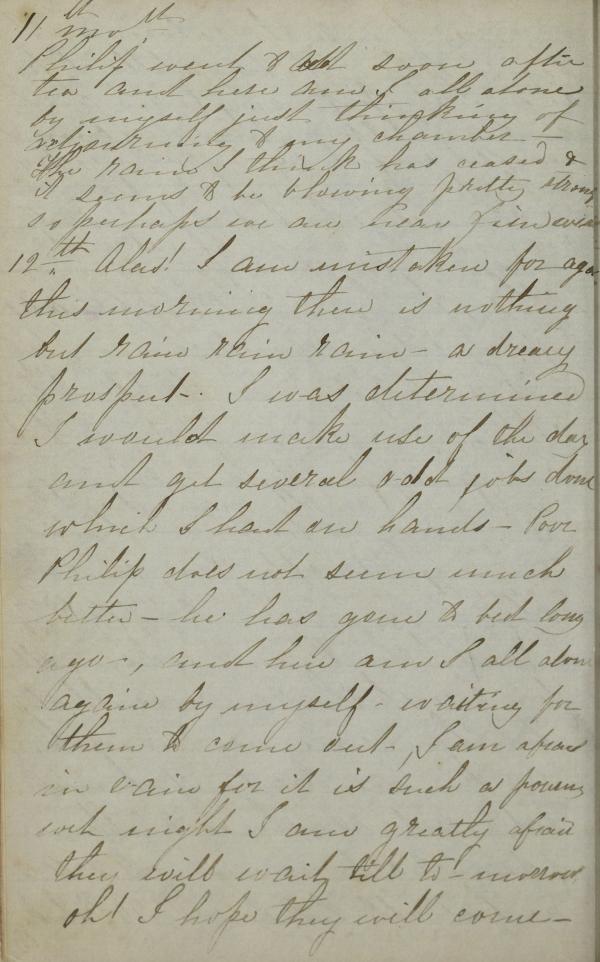 11th mo th
Philip went to bed soon after
tea and here am I all alone
by myself just thinking of
returning to my chamber —
The rain I think has ceased &
it seems to be blowing pretty strong
so perhaps we are near fine
12th Alas! I am mistaken for again
this morning there is nothing
but rain rain rain — a dreary
prospect. I was determined
I would make use of the day
and get several odd jobs done
which I had on hands — Poor
Philip does not seem much
better — he has gone to bed long
ago —, and here am I all alone
again by myself - waiting for
them to come out, I am afraid
in vain for it is such a pouring
wet night I am greatly afraid
they will wait till to-morrow
oh! I hope they will come —